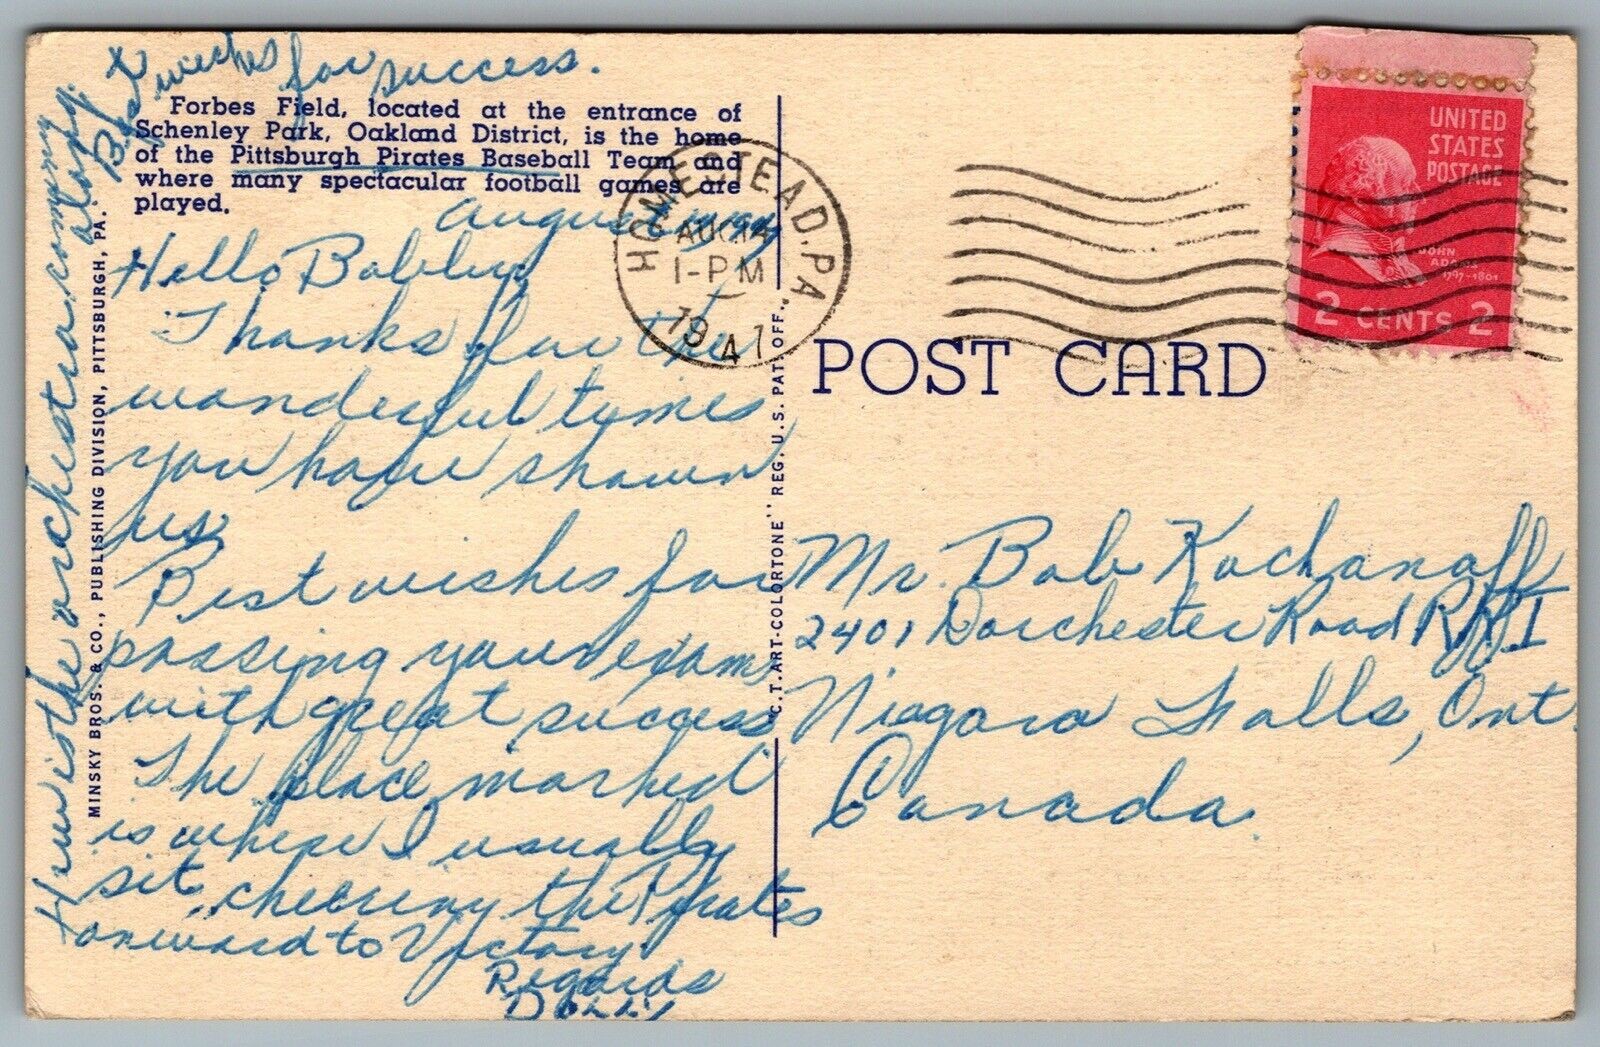 Best wieches for success.
Forbes Field, located at the entrance of
Schenley Park, Oakland District, is the home
of the Pittsburgh Pirates Baseball Team and
where many spectacular football games are
played.
August
Hello Bobby
Thanks for the
wonderful times
you have shown
us
Best wishes for
passing your exams
with great success
The place marked
is where I usually
sit, cheering the Pirates
onward to Victory.
Regards
Dolly
How is the orchestra coming
along.
MINSKY BROS. & CO., PUBLISHING DIVISION, PITTSBURGH, PA.
C.T. ART-COLORTONE" REG. U.S. PAT. OFF.
HOMESTEAD, PA
AUG 14
1-PM
1947
UNITED
STATES
POSTAGE
JOHN
ADAMS
1797-1801
2 CENTS 2
POST CARD
Mr. Bob Kochanoff
2401 Dorchester Road RR I
Niagara Falls, Ont
Canada